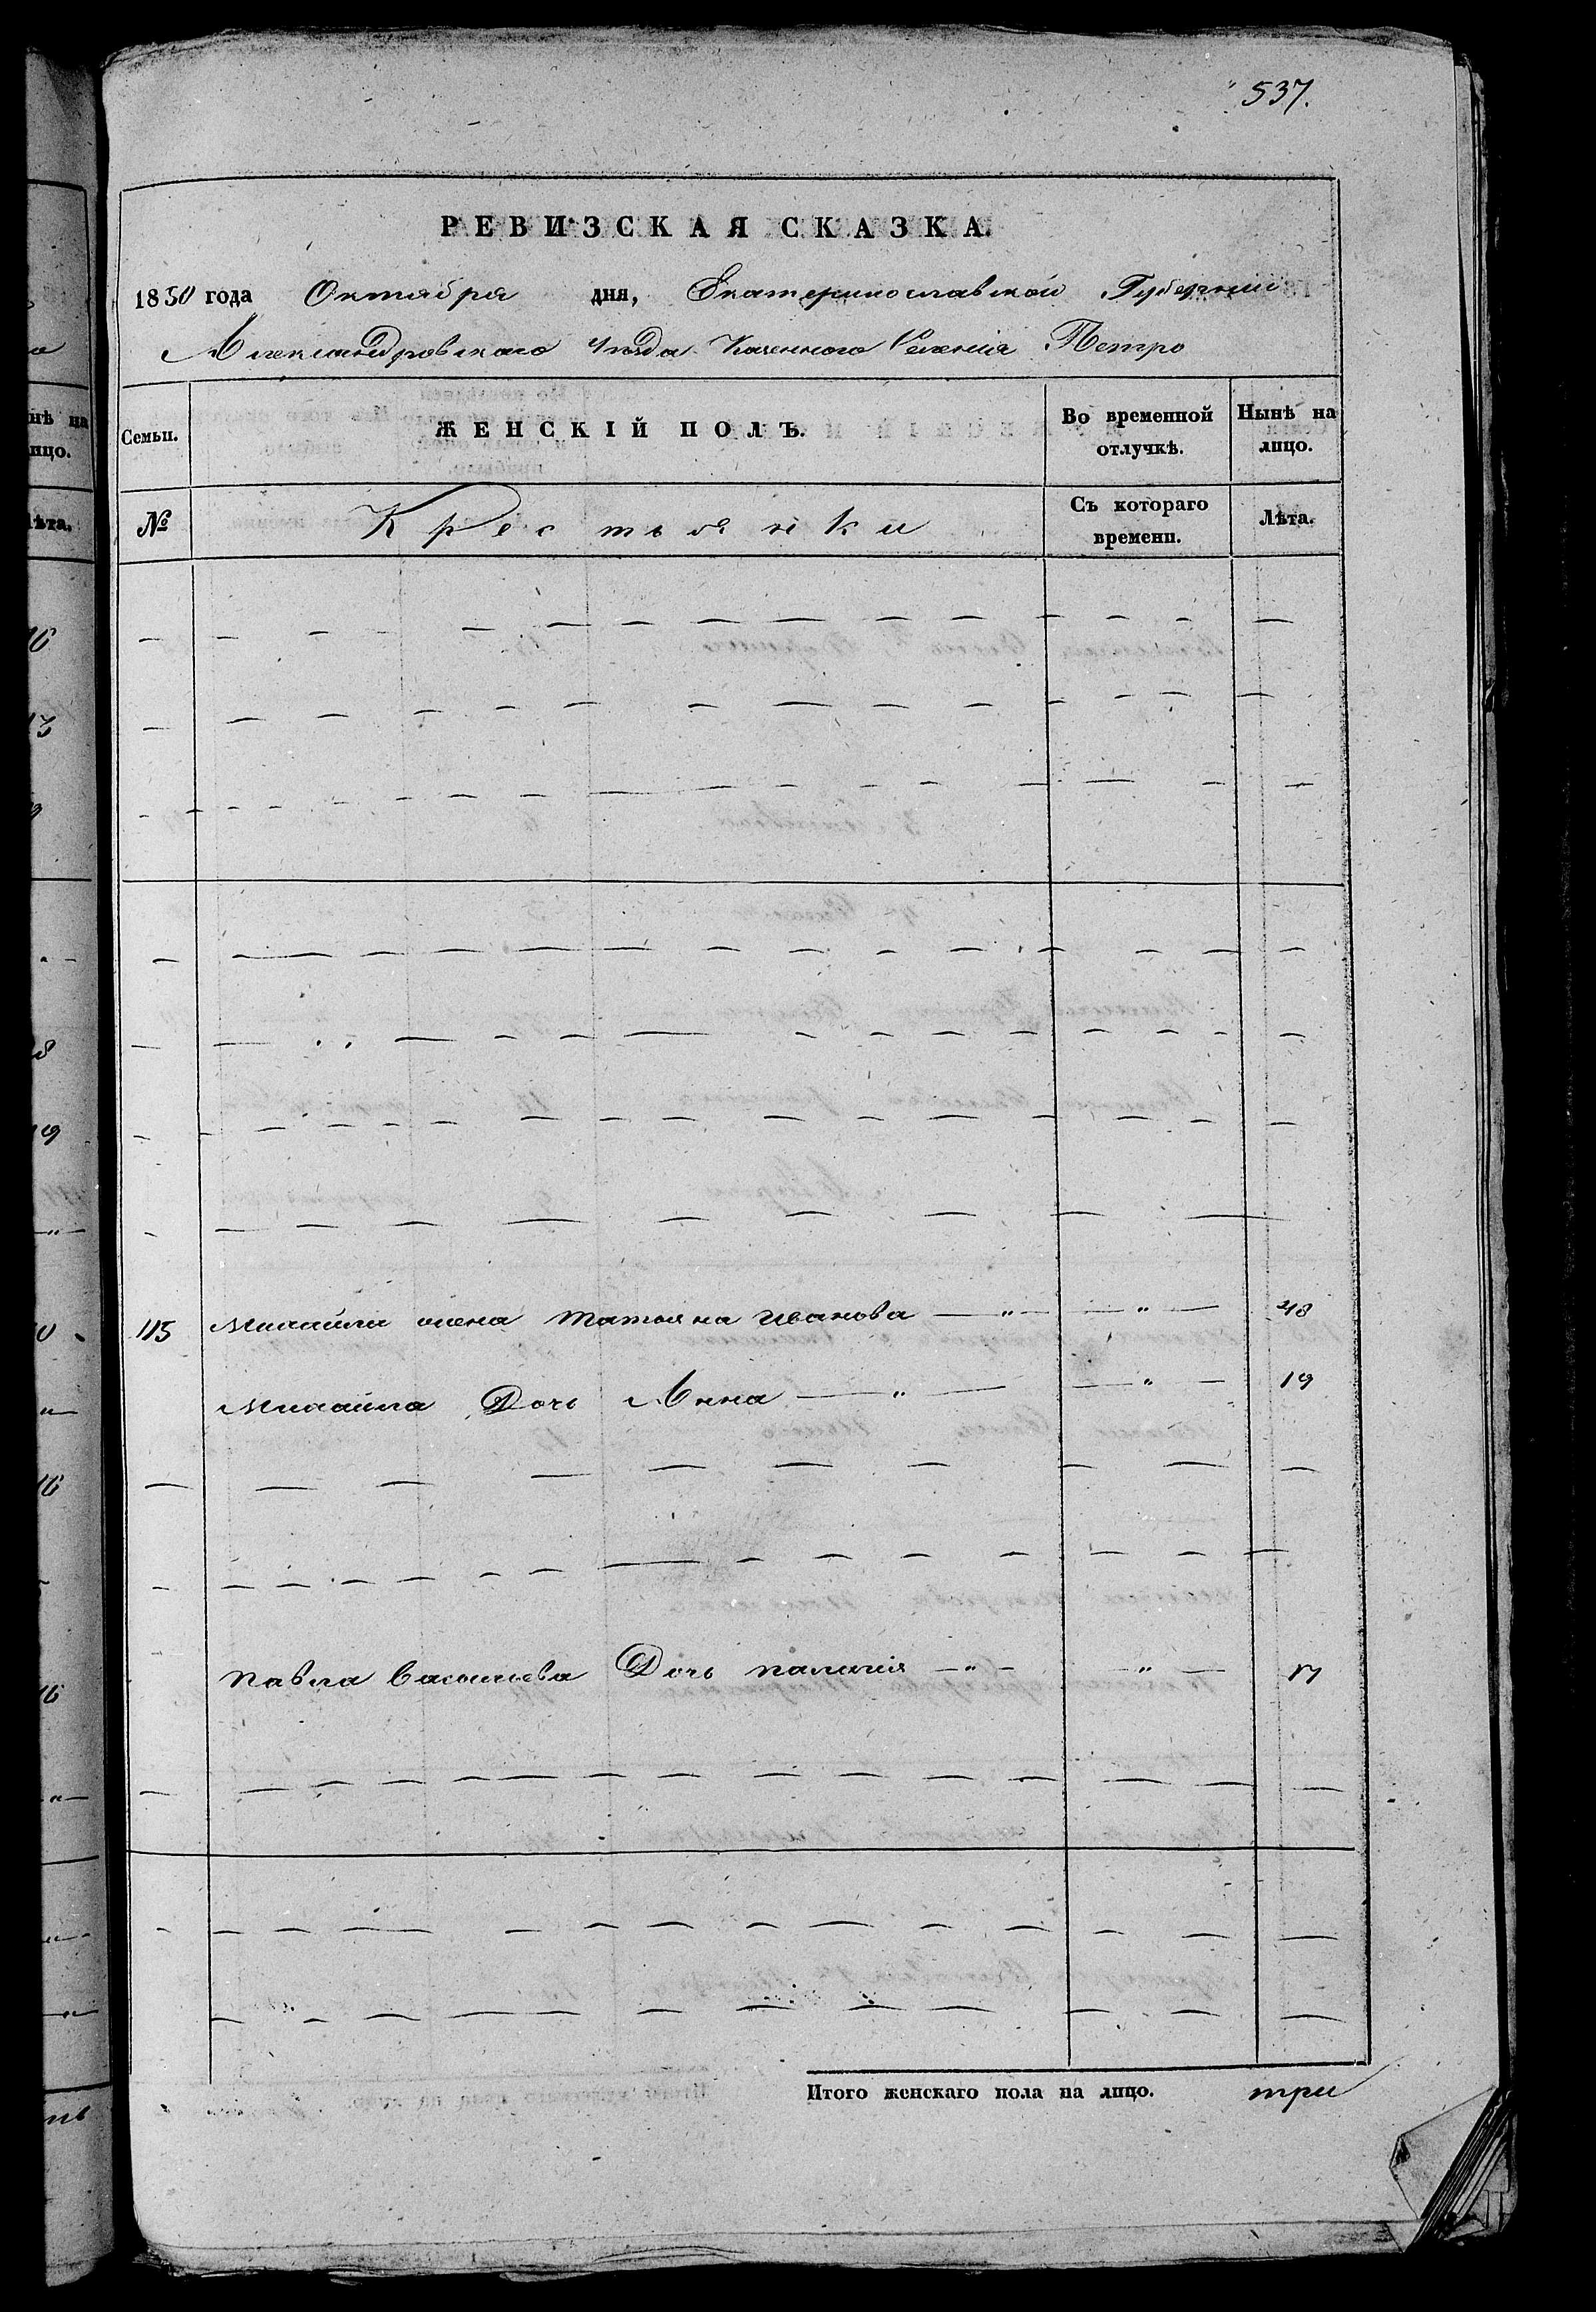 537.
РЕВИЗСКАЯ СКАЗКА.
1850 года Октября дня, Екатеринославской Губернии
Александровского Уѣзда Казенного Селенія Петро
Семьи. ЖЕНСКІЙ ПОЛЪ. Во временной отлучкѣ. Нынѣ на лицо.
№ Крестьянки Съ котораго времени. Лѣта.
115 Михайла жена Татьяна Иванова — " — — " — 48
Михайла Дочь Анна — " — — " — 19
Павла Васильева Дочь Палагия — " — — " — 17
Итого женскаго пола на лицо. три